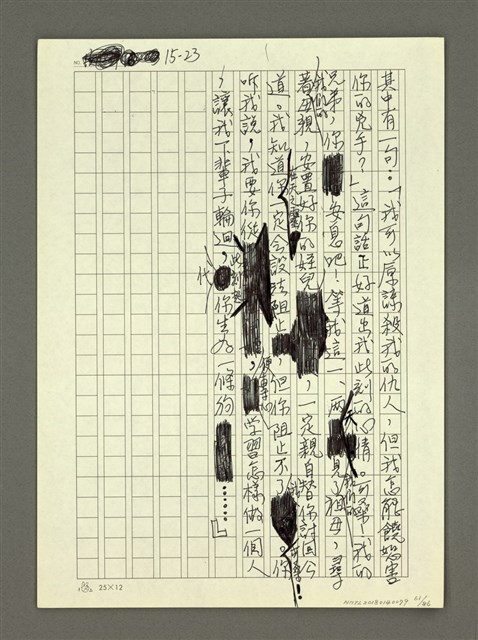 15-23
其中有一句：「我可以原諒殺我的仇人，但我怎能饒恕害
你的兇手？」這句話正好道出我此刻的心情。可琴！我的
兄弟，你安息吧！等我這一、兩天見了祖母，尋
著母親，安置好你的姪兒，一定親自替你討回公
道。我知道你一定會設法阻止，但你阻止不了你
聽我說，我要你從此刻起，便專心學習怎樣做一個人
，讓我下輩子輪迴，代你生為一條狗……」
25×12